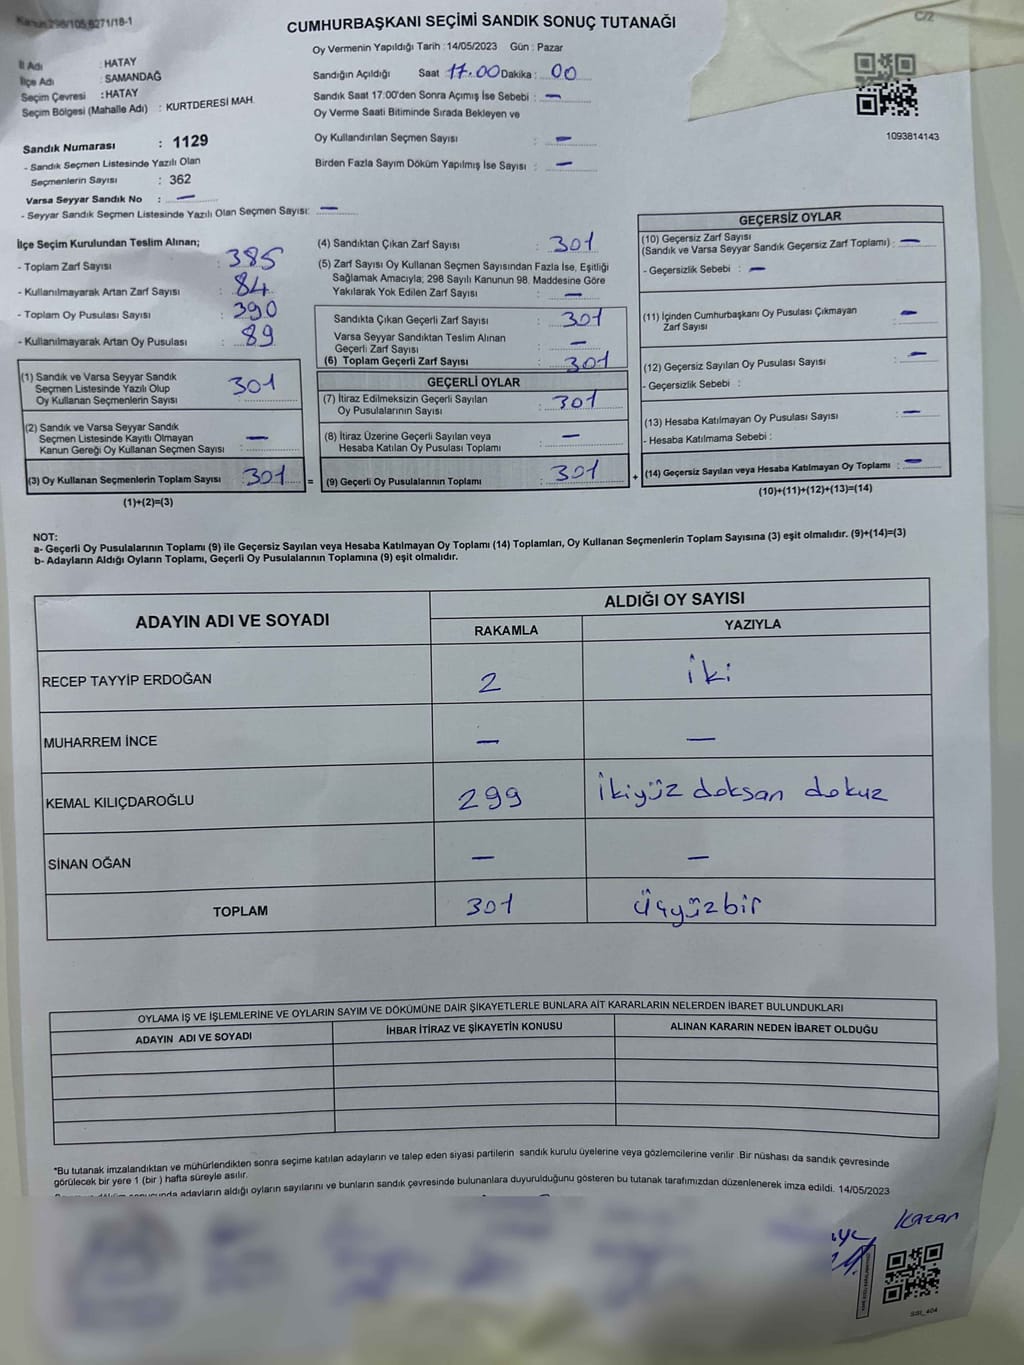 Kanun 298/105,6271/18-1
CUMHURBAŞKANI SEÇİMİ SANDIK SONUÇ TUTANAĞI
C/2
İl Adı : HATAY
İlçe Adı : SAMANDAĞ
Seçim Çevresi : HATAY
Seçim Bölgesi (Mahalle Adı) : KURTDERESİ MAH.
Sandık Numarası : 1129
- Sandık Seçmen Listesinde Yazılı Olan
Seçmenlerin Sayısı : 362
Varsa Seyyar Sandık No : —
- Seyyar Sandık Seçmen Listesinde Yazılı Olan Seçmen Sayısı: —
Oy Vermenin Yapıldığı Tarih : 14/05/2023 Gün : Pazar
Sandığın Açıldığı Saat 17.00 Dakika : 00
Sandık Saat 17:00'den Sonra Açımış İse Sebebi : —
Oy Verme Saati Bitiminde Sırada Bekleyen ve
Oy Kullandırılan Seçmen Sayısı : —
Birden Fazla Sayım Döküm Yapılmış İse Sayısı : —
1093814143
İlçe Seçim Kurulundan Teslim Alınan;
- Toplam Zarf Sayısı : 385
- Kullanılmayarak Artan Zarf Sayısı : 84
- Toplam Oy Pusulası Sayısı : 390
- Kullanılmayarak Artan Oy Pusulası : 89
(1) Sandık ve Varsa Seyyar Sandık
Seçmen Listesinde Yazılı Olup
Oy Kullanan Seçmenlerin Sayısı : 301
(2) Sandık ve Varsa Seyyar Sandık
Seçmen Listesinde Kayıtlı Olmayan
Kanun Gereği Oy Kullanan Seçmen Sayısı : —
(3) Oy Kullanan Seçmenlerin Toplam Sayısı : 301
(1)+(2)=(3)
(4) Sandıktan Çıkan Zarf Sayısı : 301
(5) Zarf Sayısı Oy Kullanan Seçmen Sayısından Fazla İse, Eşitliği
Sağlamak Amacıyla, 298 Sayılı Kanunun 98. Maddesine Göre
Yakılarak Yok Edilen Zarf Sayısı : —
Sandıkta Çıkan Geçerli Zarf Sayısı : 301
Varsa Seyyar Sandıktan Teslim Alınan
Geçerli Zarf Sayısı : —
(6) Toplam Geçerli Zarf Sayısı : 301
GEÇERLİ OYLAR
(7) İtiraz Edilmeksizin Geçerli Sayılan
Oy Pusulalarının Sayısı : 301
(8) İtiraz Üzerine Geçerli Sayılan veya
Hesaba Katılan Oy Pusulası Toplamı : —
= (9) Geçerli Oy Pusulalarının Toplamı : 301
GEÇERSİZ OYLAR
(10) Geçersiz Zarf Sayısı
(Sandık ve Varsa Seyyar Sandık Geçersiz Zarf Toplamı) : —
- Geçersizlik Sebebi : —
(11) İçinden Cumhurbaşkanı Oy Pusulası Çıkmayan
Zarf Sayısı : —
(12) Geçersiz Sayılan Oy Pusulası Sayısı : —
- Geçersizlik Sebebi :
(13) Hesaba Katılmayan Oy Pusulası Sayısı : —
- Hesaba Katılmama Sebebi :
+ (14) Geçersiz Sayılan veya Hesaba Katılmayan Oy Toplamı : —
(10)+(11)+(12)+(13)=(14)
NOT:
a- Geçerli Oy Pusulalarının Toplamı (9) ile Geçersiz Sayılan veya Hesaba Katılmayan Oy Toplamı (14) Toplamları, Oy Kullanan Seçmenlerin Toplam Sayısına (3) eşit olmalıdır. (9)+(14)=(3)
b- Adayların Aldığı Oyların Toplamı, Geçerli Oy Pusulalarının Toplamına (9) eşit olmalıdır.
ADAYIN ADI VE SOYADI
ALDIĞI OY SAYISI
RAKAMLA YAZIYLA
RECEP TAYYİP ERDOĞAN 2 iki
MUHARREM İNCE — —
KEMAL KILIÇDAROĞLU 299 ikiyüz doksan dokuz
SİNAN OĞAN — —
TOPLAM 301 üçyüzbir
OYLAMA İŞ VE İŞLEMLERİNE VE OYLARIN SAYIM VE DÖKÜMÜNE DAİR ŞİKAYETLERLE BUNLARA AİT KARARLARIN NELERDEN İBARET BULUNDUKLARI
ADAYIN ADI VE SOYADI İHBAR İTİRAZ VE ŞİKAYETİN KONUSU ALINAN KARARIN NEDEN İBARET OLDUĞU
*Bu tutanak imzalandıktan ve mühürlendikten sonra seçime katılan adayların ve talep eden siyasi partilerin sandık kurulu üyelerine veya gözlemcilerine verilir .Bir nüshası da sandık çevresinde
görülecek bir yere 1 (bir ) hafta süreyle asılır.
adayların aldığı oyların sayılarını ve bunların sandık çevresinde bulunanlara duyurulduğunu gösteren bu tutanak tarafımızdan düzenlenerek imza edildi. 14/05/2023
Kazan
SSI_404